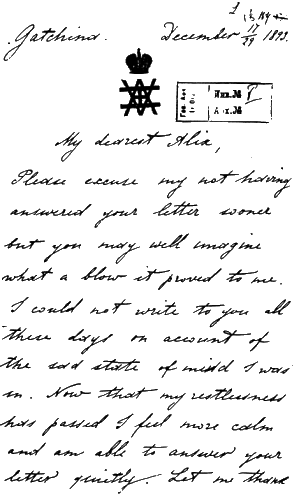 Gatchina. December 17/29 1893.
My dearest Alix,
Please excuse my not having
answered your letter sooner
but you may well imagine
what a blow it proved to me.
I could not write to you all
these days on account of
the sad state of mind I was
in. Now that my restlessness
has passed I feel more calm
and am able to answer your
letter quietly. Let me thank